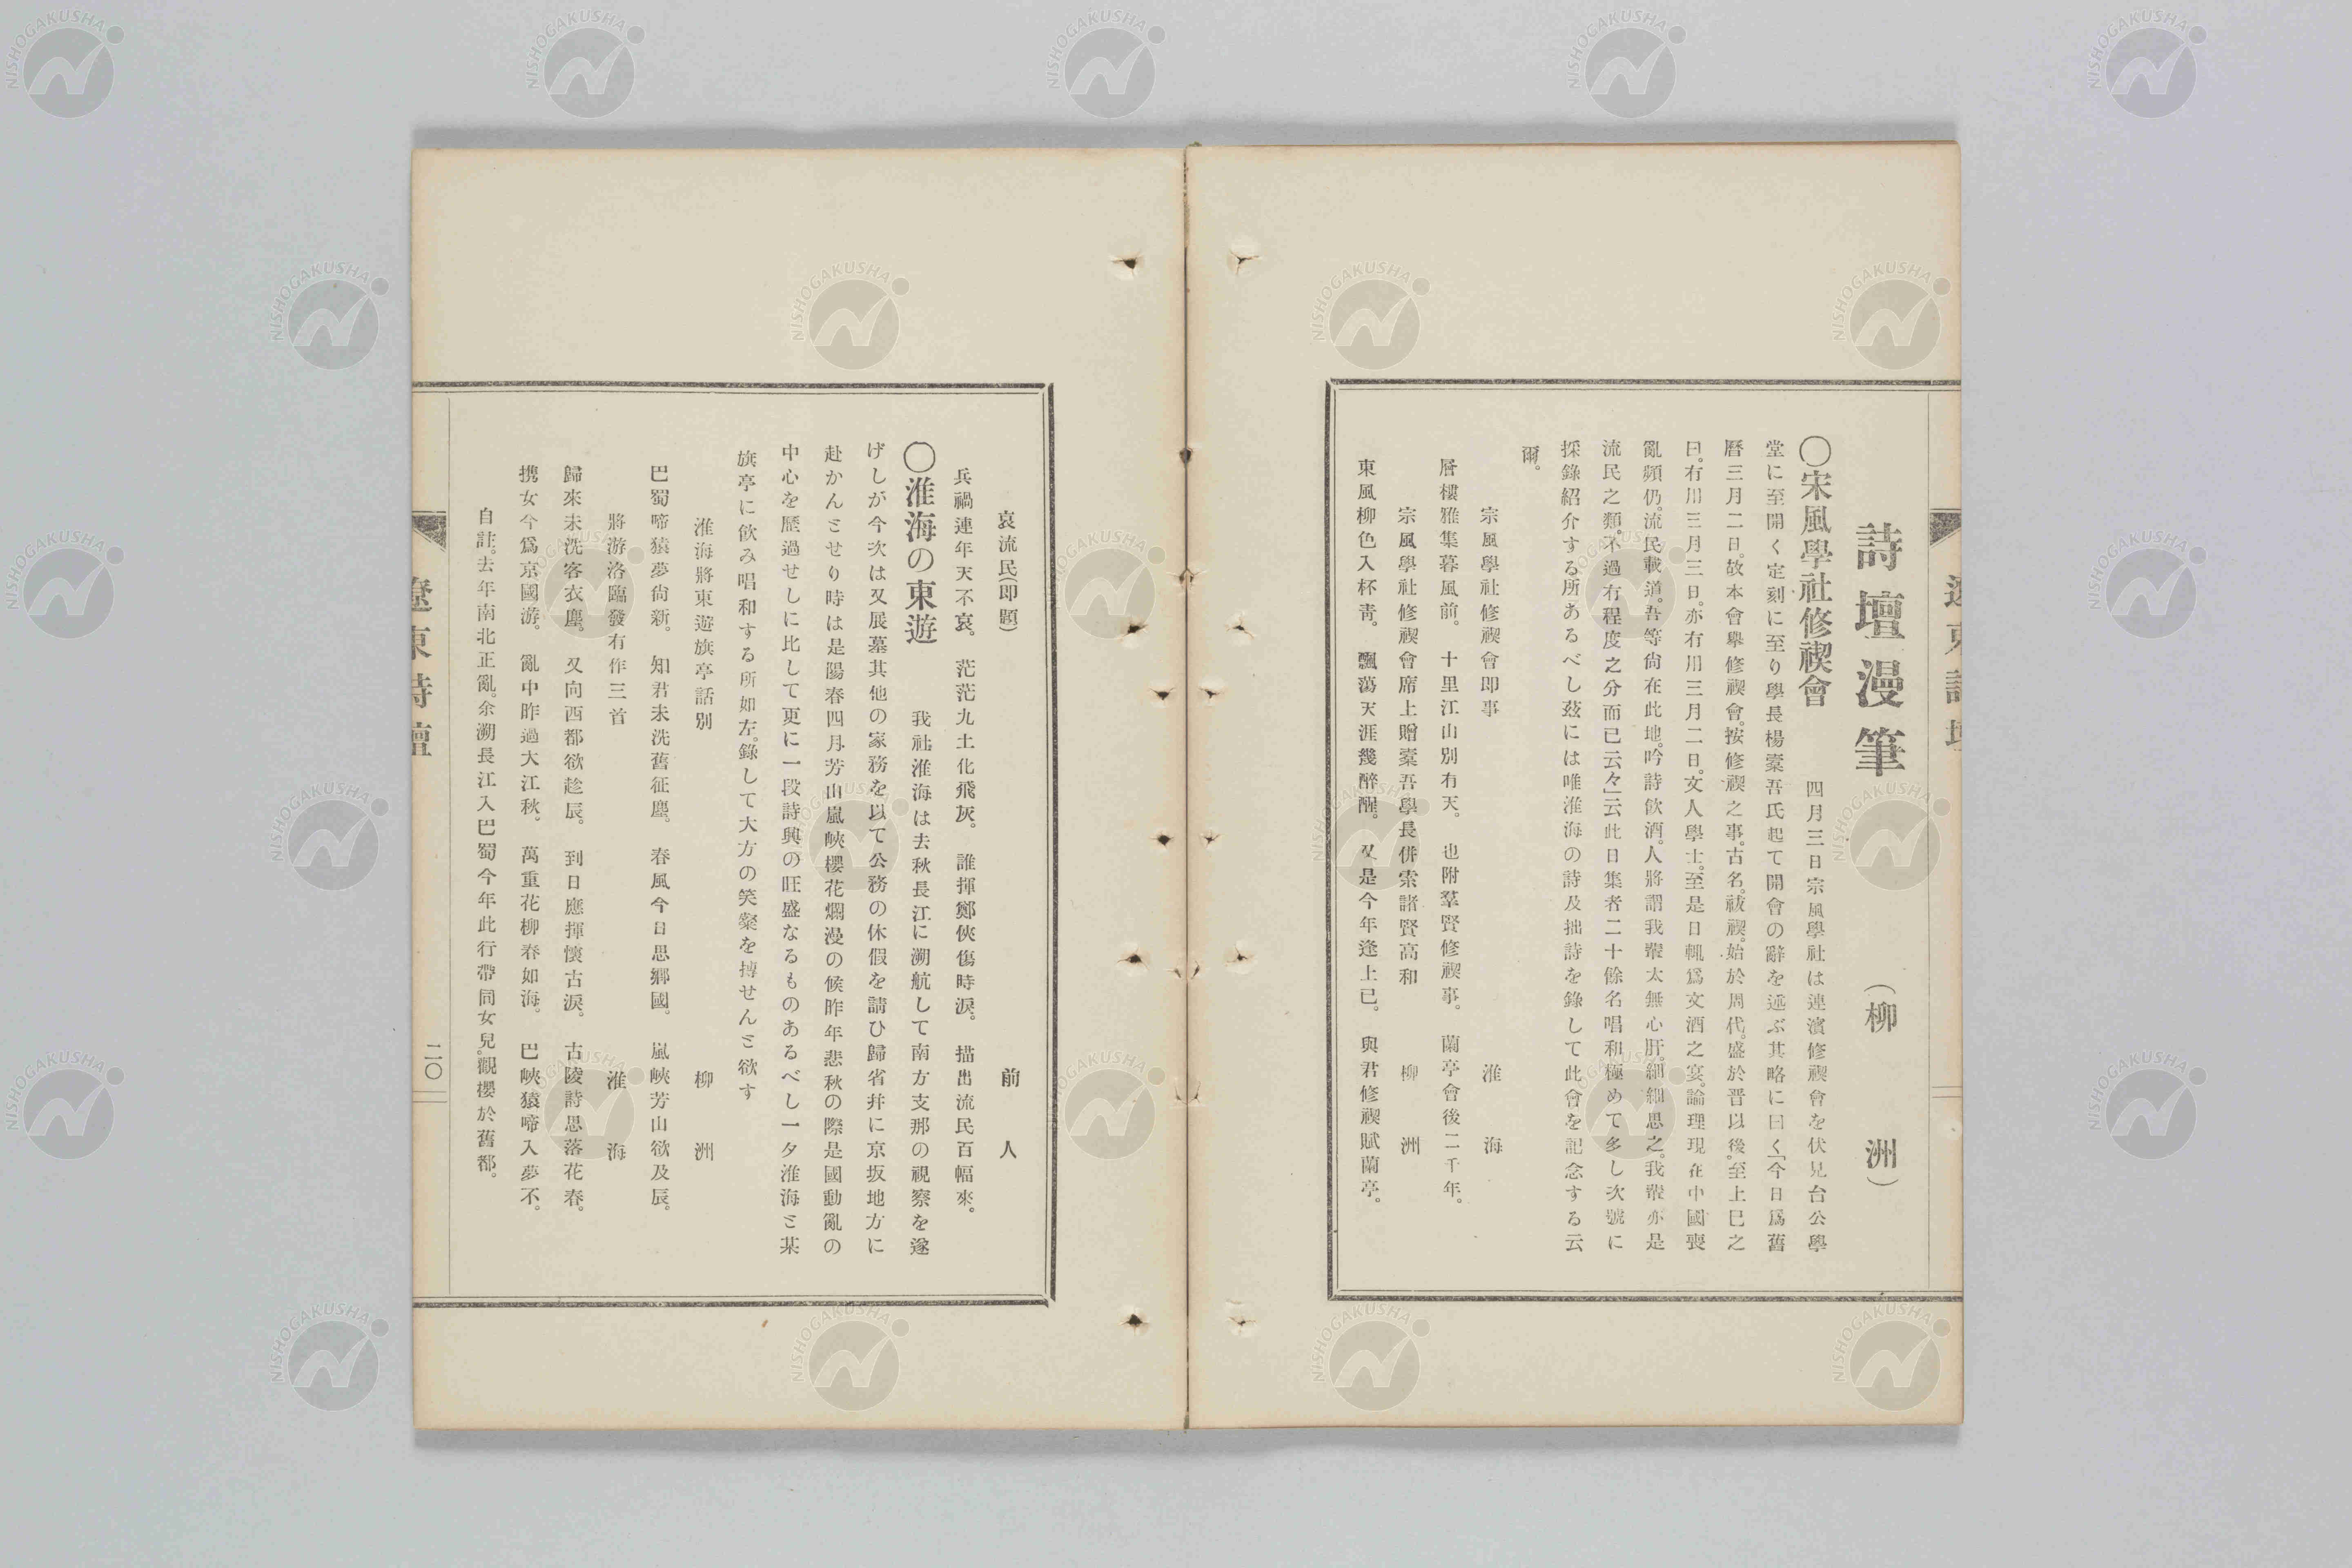 詩壇漫筆　（柳洲）
〇宋風學社修禊會　四月三日宗風學社は連濱修禊會を伏見台公學
堂に至開く定刻に至り學長楊槖吾氏起て開會の辭を述ぶ其略に曰く「今日爲舊
曆三月二日。故本會擧修禊會。按修禊之事。古名。祓禊。始於周代。盛於晋以後。至上巳之
曰。有用三月三日。亦有用三月二日。文人學士。至是日輒爲文酒之宴。論理現在中國喪
亂頻仍。流民載道。吾等尙在此地。吟詩飮酒。人將謂我輩太無心肝。細細思之。我輩亦是
流民之類。不過有程度之分而已云々」云此日集者二十餘名唱和極めて多し次號に
採錄紹介する所あるべし茲には唯淮海の詩及拙詩を錄して此會を記念する云
爾。
宗風學社修禊會即事　淮海
層樓雅集暮風前。　十里江山別有天。　也附羣賢修禊事。　蘭亭會後二千年。
宗風學社修禊會席上贈槖吾學長併索諸賢高和　柳洲
東風柳色入杯靑。　飄蕩天涯幾醉醒。　又是今年逢上已。　與君修禊賦蘭亭。
哀流民（即題）　前人
兵禍連年天不哀。　茫茫九土化飛灰。　誰揮鄭俠傷時淚。　描出流民百幅來。
〇淮海の東遊　我社淮海は去秋長江に溯航して南方支那の視察を遂
げしが今次は又展墓其他の家務を以て公務の休假を請ひ歸省幷に京坂地方に
赴かんとせり時は是陽春四月芳山嵐峽櫻花爛漫の候昨年悲秋の際是國動亂の
中心を歷過せしに比して更に一段詩興の旺盛なるものあるべし一夕淮海と某
旗亭に飮み唱和する所如左。錄して大方の笑粲を搏せんと欲す
淮海將東遊旗亭話別　柳洲
巴蜀啼猿夢尙新。　知君未洗舊征塵。　春風今日思鄕國。　嵐峽芳山欲及辰。
將游洛臨發有作三首　淮海
歸來未洗客衣塵。　又向西都欲趁辰。　到日應揮懷古淚。　古陵詩思落花春。
携女今爲京國游。　亂中昨過大江秋。　萬重花柳春如海。　巴峽猿啼入夢不。
自註。去年南北正亂。余溯長江入巴蜀今年此行帶同女兒。觀櫻於舊都。
遼東詩壇
二〇